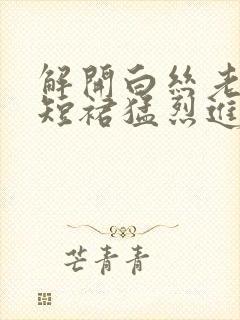 解開白丝老
短裙猛烈進
芒青青